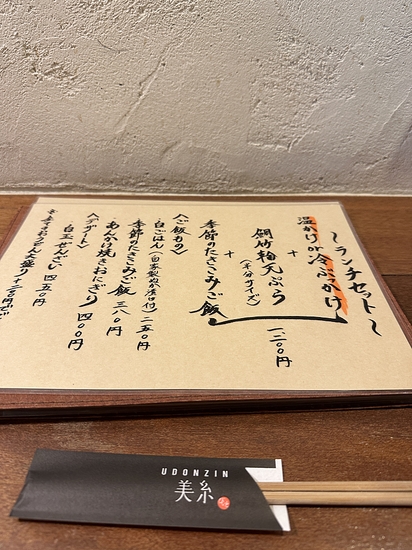 〜ランチセット〜
温かけ or 冷ぶっかけ
+
鯛竹輪天ぷら
(半分サイズ)
+
季節のたきこみご飯
一二〇〇円
〈ご飯もの〉
・白ごはん(自家製ぬか漬け付) 二五〇円
・季節のたきこみご飯 三八〇円
・あんかけ焼きおにぎり 四〇〇円
〈デザート〉
・白玉ぜんざい 四五〇円
うどん大盛り +二〇〇円
UDONZIN
美糸